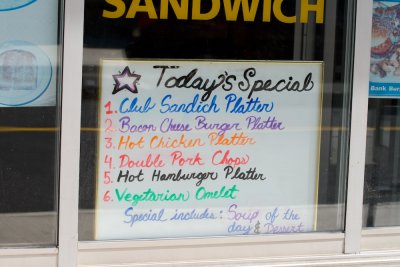 SANDWICH
Today's Special
1. Club Sandich Platter
2. Bacon Cheese Burger Platter
3. Hot Chicken Platter
4. Double Pork Chops
5. Hot Hamburger Platter
6. Vegetarian Omelet
Special includes: Soup of the
day & Dessert
Bank Bur